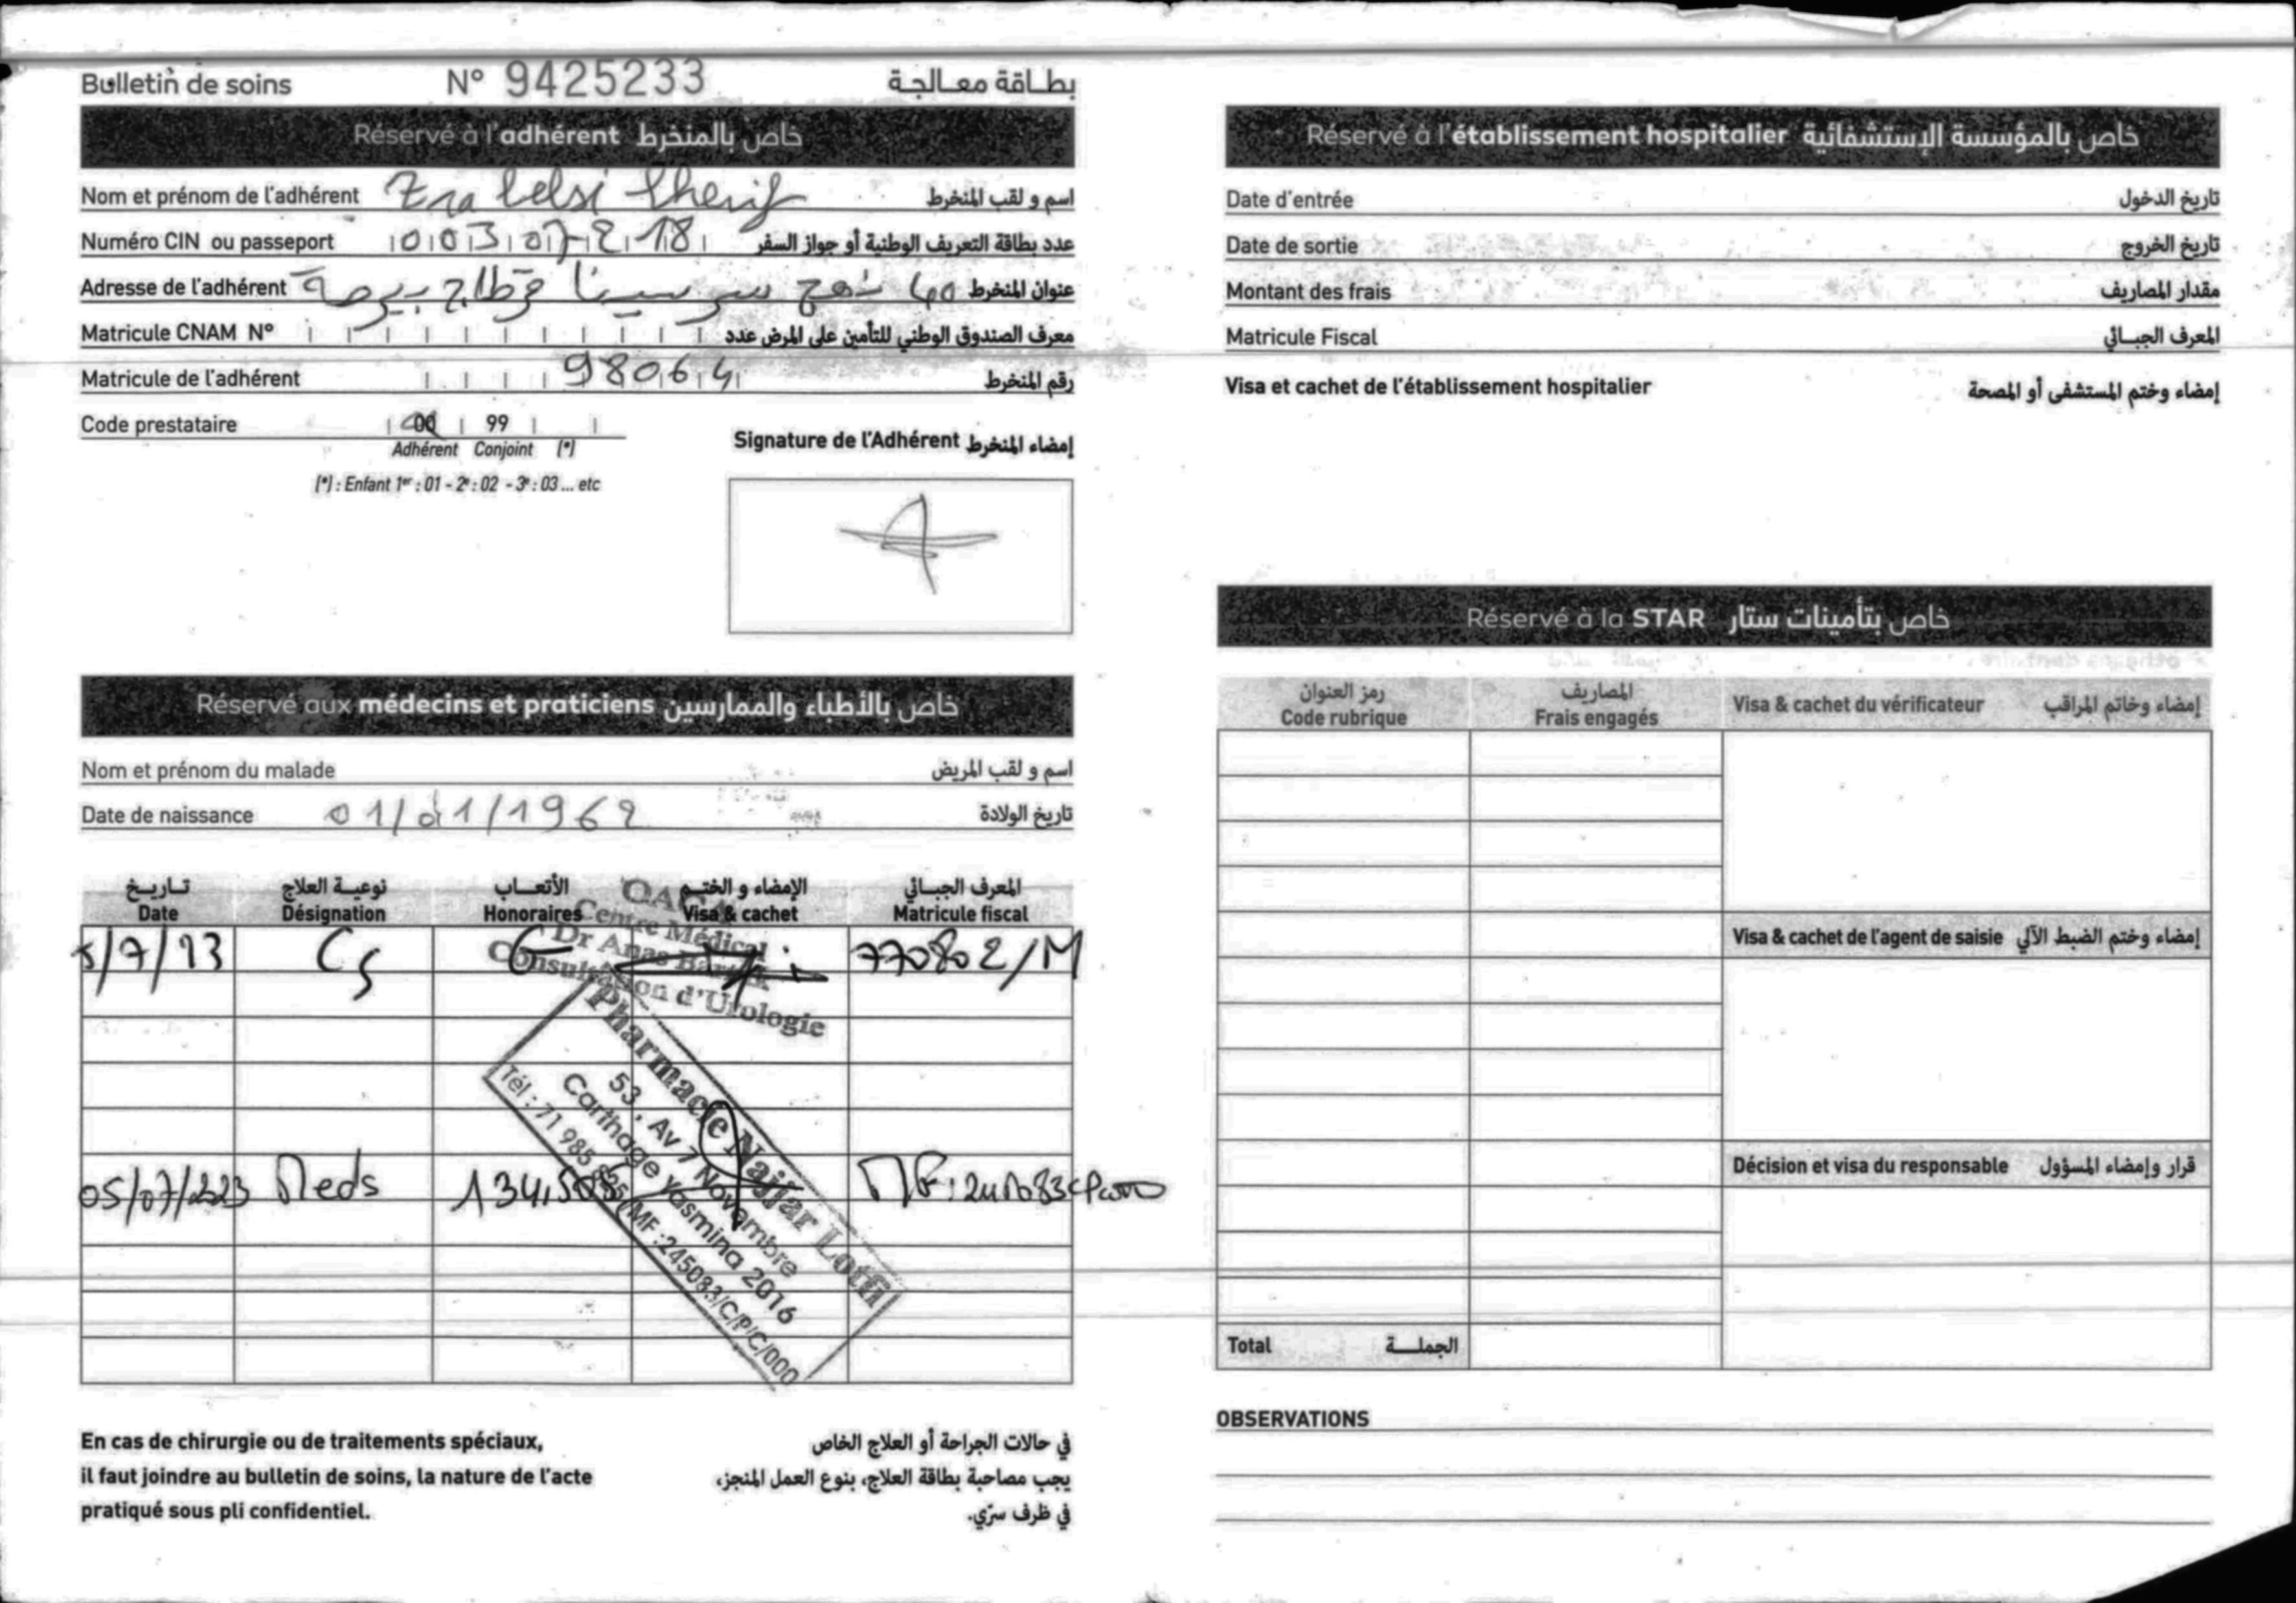 Bulletin de soins N° 9425233 بطاقة معالجة
Réservé à l'adhérent خاص بالمنخرط
Nom et prénom de l'adhérent Trabelsi Cherif اسم و لقب المنخرط
Numéro CIN ou passeport 0 0 3 0 7 2 18 عدد بطاقة التعريف الوطنية أو جواز السفر
Adresse de l'adhérent عنوان المنخرط 40 نهج سرسينا قرطاج بيرصة
Matricule CNAM N° معرف الصندوق الوطني للتأمين على المرض عدد
Matricule de l'adhérent 98064 رقم المنخرط
Code prestataire 00 99
Adhérent Conjoint (*)
(*) : Enfant 1er : 01 - 2e : 02 - 3e : 03 ... etc
Signature de l'Adhérent إمضاء المنخرط
Réservé aux médecins et praticiens خاص بالأطباء والممارسين
Nom et prénom du malade اسم و لقب المريض
Date de naissance 01/01/1962 تاريخ الولادة
تاريخ نوعية العلاج الأتعاب الإمضاء و الختم المعرف الجبائي
Date Désignation Honoraires Visa & cachet Matricule fiscal
5/7/23 Cs 770802/M
OACA
Centre Médical
Dr Anas
Consultation d'Urologie
05/07/2023 Meds
Pharmacie Najjar Lotfi
53, Av 7 Novembre
Carthage Yasmina 2016
Tél : 71 985 MF :245083/C/P/C/000
En cas de chirurgie ou de traitements spéciaux,
il faut joindre au bulletin de soins, la nature de l'acte
pratiqué sous pli confidentiel.
في حالات الجراحة أو العلاج الخاص
يجب مصاحبة بطاقة العلاج، بنوع العمل المنجز،
في ظرف سرّي.
Réservé à l'établissement hospitalier خاص بالمؤسسة الإستشفائية
Date d'entrée تاريخ الدخول
Date de sortie تاريخ الخروج
Montant des frais مقدار المصاريف
Matricule Fiscal المعرف الجبائي
Visa et cachet de l'établissement hospitalier إمضاء وختم المستشفى أو المصحة
Réservé à la STAR خاص بتأمينات ستار
رمز العنوان المصاريف
Code rubrique Frais engagés
Visa & cachet du vérificateur إمضاء وخاتم المراقب
Visa & cachet de l'agent de saisie إمضاء وختم الضبط الآلي
Décision et visa du responsable قرار وإمضاء المسؤول
Total الجملة
OBSERVATIONS